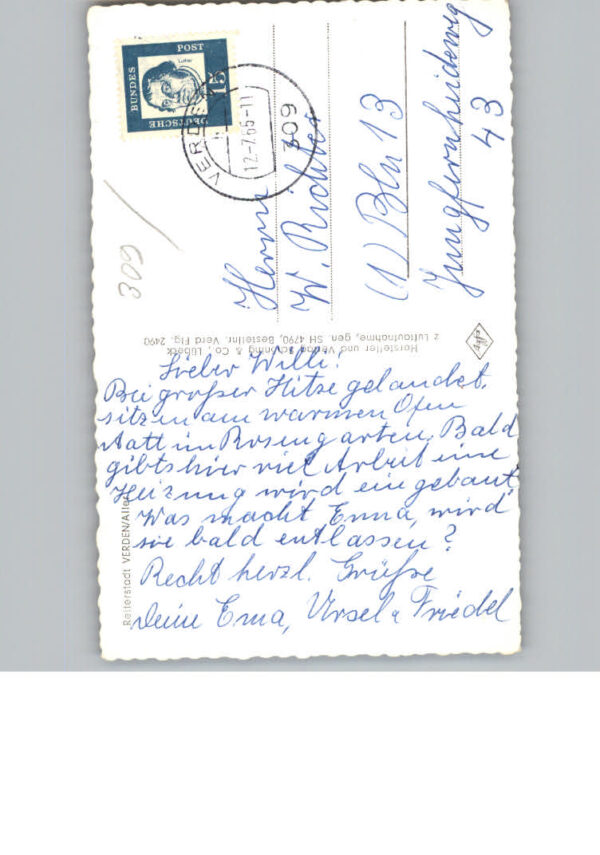 DEUTSCHE BUNDESPOST
Luther
15
VERDEN
12-7.65-11
309
309
Herrn
W. Richter
(1) Bln 13
Jungfernheideweg
43
Hersteller und Verlag Schöning & Co., Lübeck
z Luftaufnahme, gen. SH 4790, Bestellnr. Verd Flg. 2490
Reiterstadt VERDEN/Aller
Lieber Willi!
Bei großer Hitze gelandet.
sitzen am warmen Ofen
statt im Rosengarten. Bald
gibts hier viel Arbeit eine
Heizung wird eingebaut
Was macht Erna, wird
sie bald entlassen?
Recht herzl. Grüße
Deine Erna, Ursel u Friedel